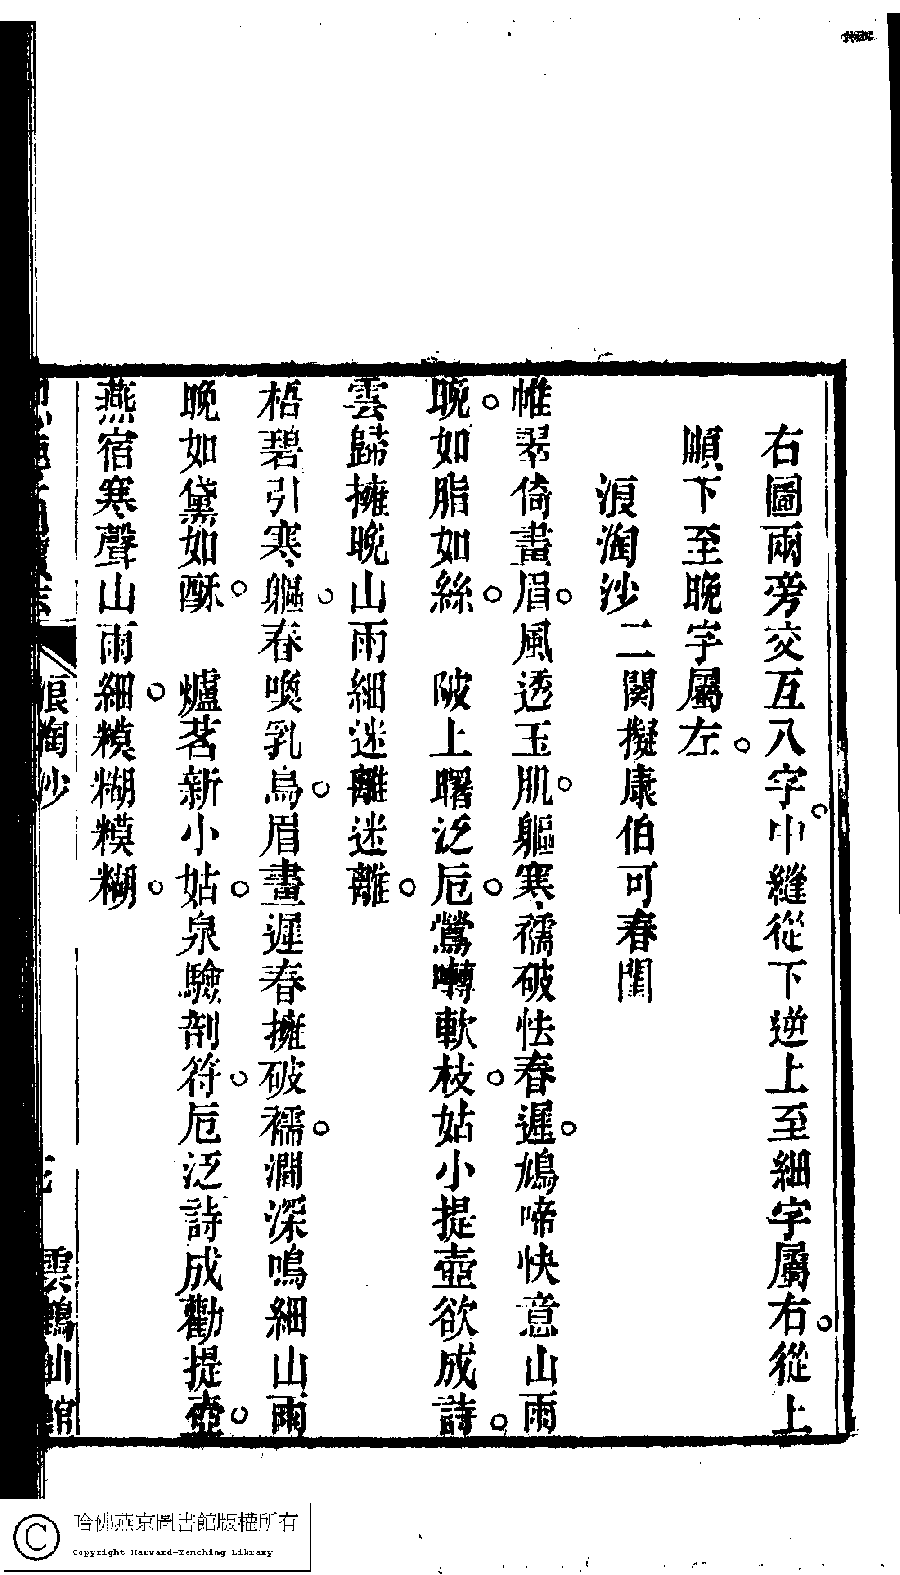 右圖兩旁交互八字。中縫從下逆上至細字屬右。從上
順下至晚字屬左。
浪淘沙二闋擬康伯可春閨
帷翠倚畫眉。風透玉肌。軀寒襦破怯春遲。鳩啼快意山雨
晚。如脂如絲。 陂上曙泛卮。鶯囀軟枝。姑小提壺欲成詩。
雲歸擁晚山雨細迷離迷離。
梧碧引寒軀。春喚乳烏。眉畫遲春擁破襦。澗深鳴細山雨
晚如黛如酥。 爐茗新小姑。泉驗剖符。卮泛詩成勸提壺。
燕宿寒聲山雨細。糢糊糢糊。
浪淘沙
雲鶴仙館
哈佛燕京圖書館版權所有
Copyright Harvard-Yenching Library